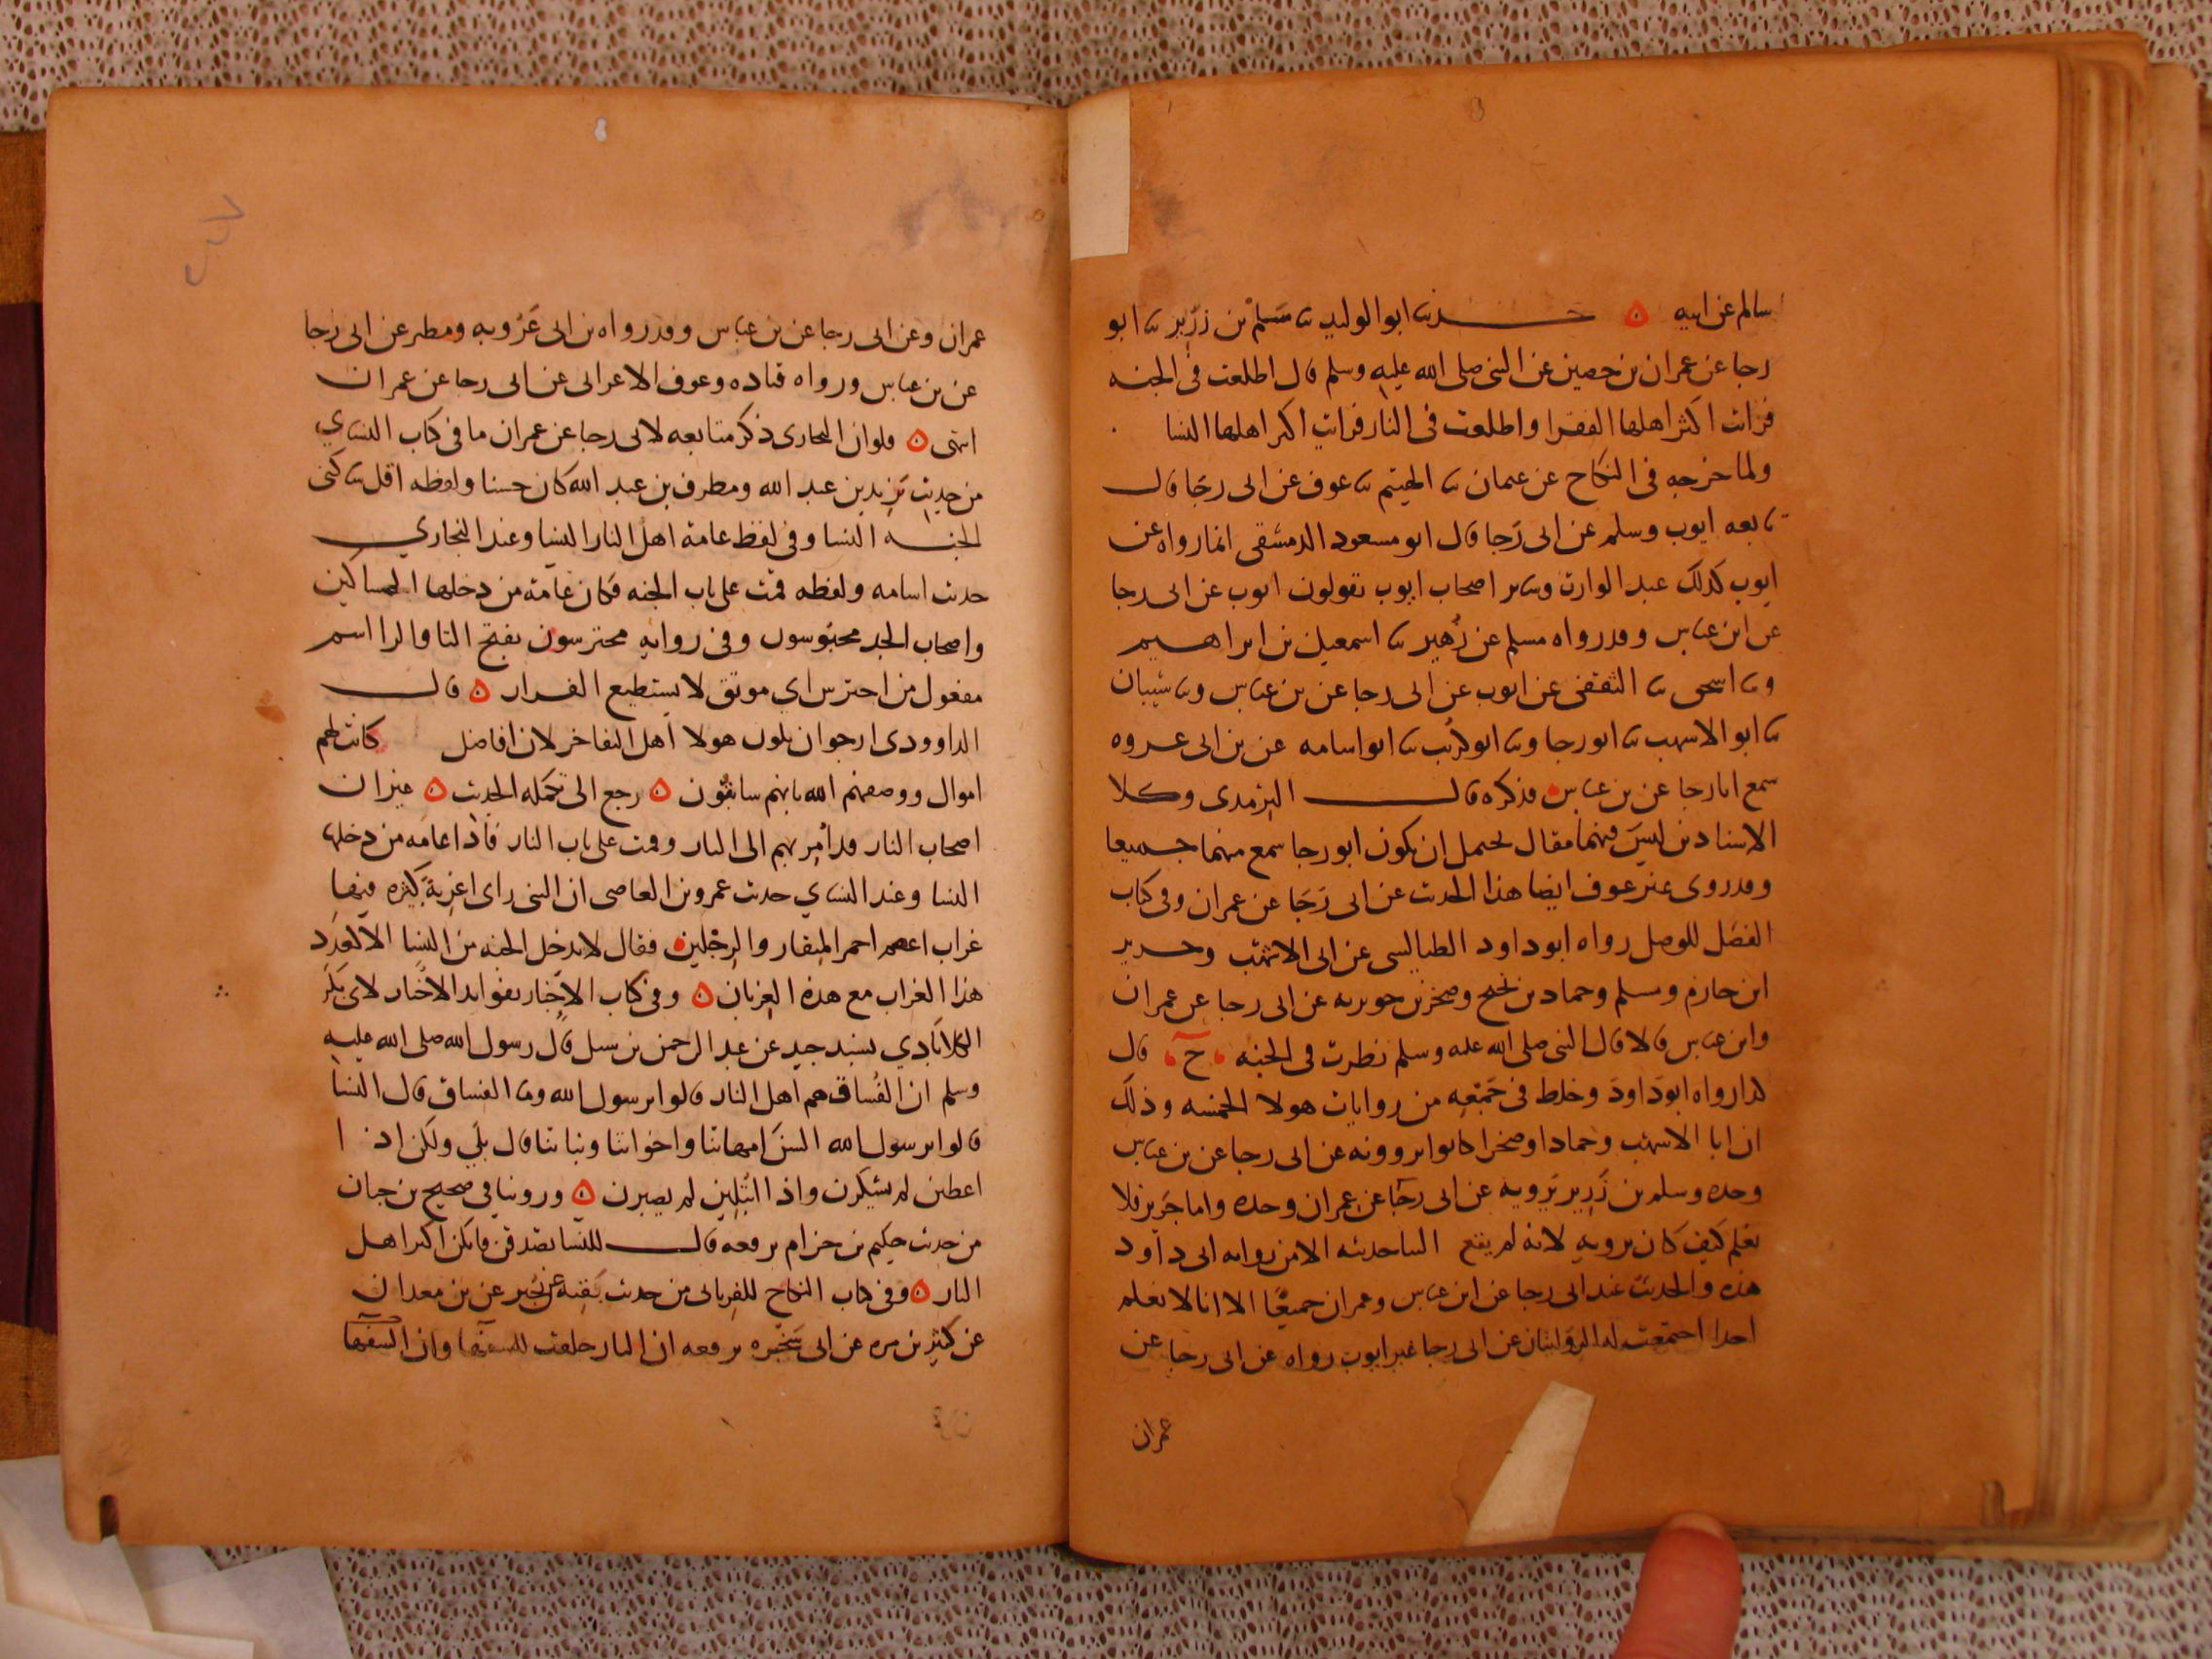 سالم عن ابيه ۞ حدثنا ابو الوليد ثنا سلم بن زرير ثنا ابو
رجا عن عمران بن حصين عن النبى صلى الله عليه وسلم قال اطلعت فى الجنه
فرات اكثر اهلها الفقرا واطلعت فى النار فرايت اكثر اهلها النسا
ولما خرجه فى النكاح عن عثمان ثنا الهيثم ثنا عوف عن ابى رجا قال
تابعه ايوب وسلم عن ابى رجا قال ابو مسعود الدمشقى انما رواه عن
ايوب كذلك عبد الوارث وساير اصحاب ايوب يقولون ايوب عن ابى رجا
عن ابن عباس وقد رواه مسلم عن زهير ثنا اسمعيل بن ابراهيم
وثنا اسحق ثنا الثقفى عن ايوب عن ابى رجا عن بن عباس وثنا شيبان
ثنا ابو الاشهب ثنا ابو رجا وثنا ابو كريب ثنا ابو اسامه عن بن ابى عروه
سمع ابا رجا عن بن عباس فذكره قال الترمذى وكلا
الاسنادين ليس فيهما مقال يحتمل ان يكون ابو رجا سمع منهما جميعا
وقد روى غير عوف ايضا هذا الحديث عن ابى رجا عن عمران وفى كتاب
الفصل للوصل رواه ابو داود الطيالسى عن ابى الاشهب وجرير
ابن حازم وسلم وحماد بن نجيح وصخر بن جويريه عن ابى رجا عن عمران
وابن عباس قالا قال النبى صلى الله عليه وسلم نظرت فى الجنه ح قال
كذا رواه ابو داود وخلط فى جمعه من روايات هولا الخمسه وذلك
ان ابا الاشهب وحمادا وصخرا كانوا يروونه عن ابى رجا عن بن عباس
وحده وسلم بن زرير يرويه عن ابى رجا عن عمران وحده واما جرير فلا
نعلم كيف كان يرويه لانه لم يقع الينا حديثه الا من روايه ابى داود
هذه والحديث عند ابى رجا عن ابن عباس وعمران جميعا الا انا لا نعلم
احدا اجتمعت له الروايتان عن ابى رجا غير ايوب رواه عن ابى رجا عن
عمران
عمران وعن ابى رجا عن بن عباس وقد رواه بن ابى عروبه ومطر عن ابى رجا
عن بن عباس ورواه قتاده وعوف الاعرابى عن ابى رجا عن عمران
انتهى ۞ ولو ان البخارى ذكر متابعه لابى رجا عن عمران ما فى كتاب النساي
من حديث يزيد بن عبد الله ومطرف بن عبد الله كان حسنا ولفظه اقل ساكنى
الجنه النسا وفى لفظ عامة اهل النار النسا وعند البخاري
حديث اسامه ولفظه قمت على باب الجنه فكان عامة من دخلها المساكين
واصحاب الجد محبوسون وفى روايه محترسون بفتح التا والرا اسم
مفعول من احترس اي موثق لا يستطيع الفرار ۞ قال
الداوودى ارجوا ان يكون هولا اهل التفاخر لان افاضل كانت لهم
اموال ووصفهم الله بانهم سابقون ۞ رجع الى تكمله الحديث ۞ غير ان
اصحاب النار قد امر بهم الى النار وقمت على باب النار فاذا عامه من دخلها
النسا وعند النساي حديث عمرو بن العاصى ان النبى راى اغربة كثيره فيها
غراب اعصم احمر المنقار والرجلين فقال لا يدخل الجنه من النسا الا كقدر
هذا الغراب مع هذه الغربان ۞ وفى كتاب الاخبار بفوايد الاخبار لابى بكر
الكلاباذي بسند جيد عن عبد الرحمن بن شبل قال رسول الله صلى الله عليه
وسلم ان الفساق هم اهل النار قالوا يرسول الله وما الفساق قال النسا
قالوا يرسول الله السن امهاتنا واخواتنا وبناتنا قال بلي ولكن اذا
اعطين لم يشكرن واذا ابتلين لم يصبرن ۞ وروينا في صحيح بن حبان
من حديث حكيم بن حزام يرفعه قال للنسا تصدقن فانكن اكثر اهل
النار ۞ وفى كتاب النكاح للفريابى من حديث بقيه عن بحير عن بن معدان
عن كثير بن مره عن ابى شجره يرفعه ان النار خلقت للسفها وان السفها